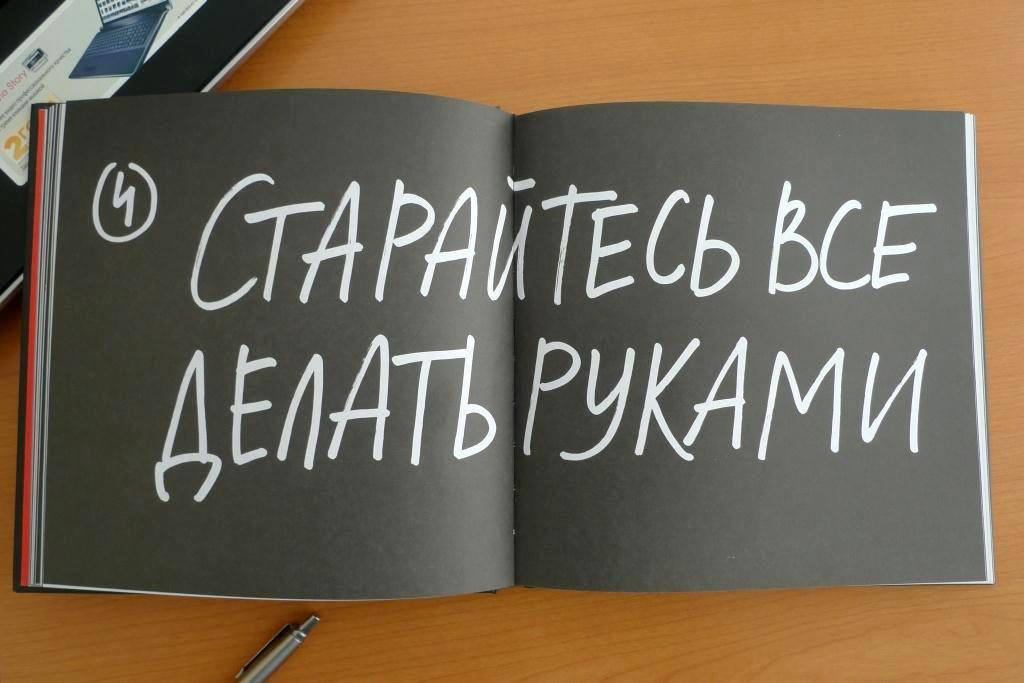 4
СТАРАЙТЕСЬ ВСЕ
ДЕЛАТЬ РУКАМИ
Story